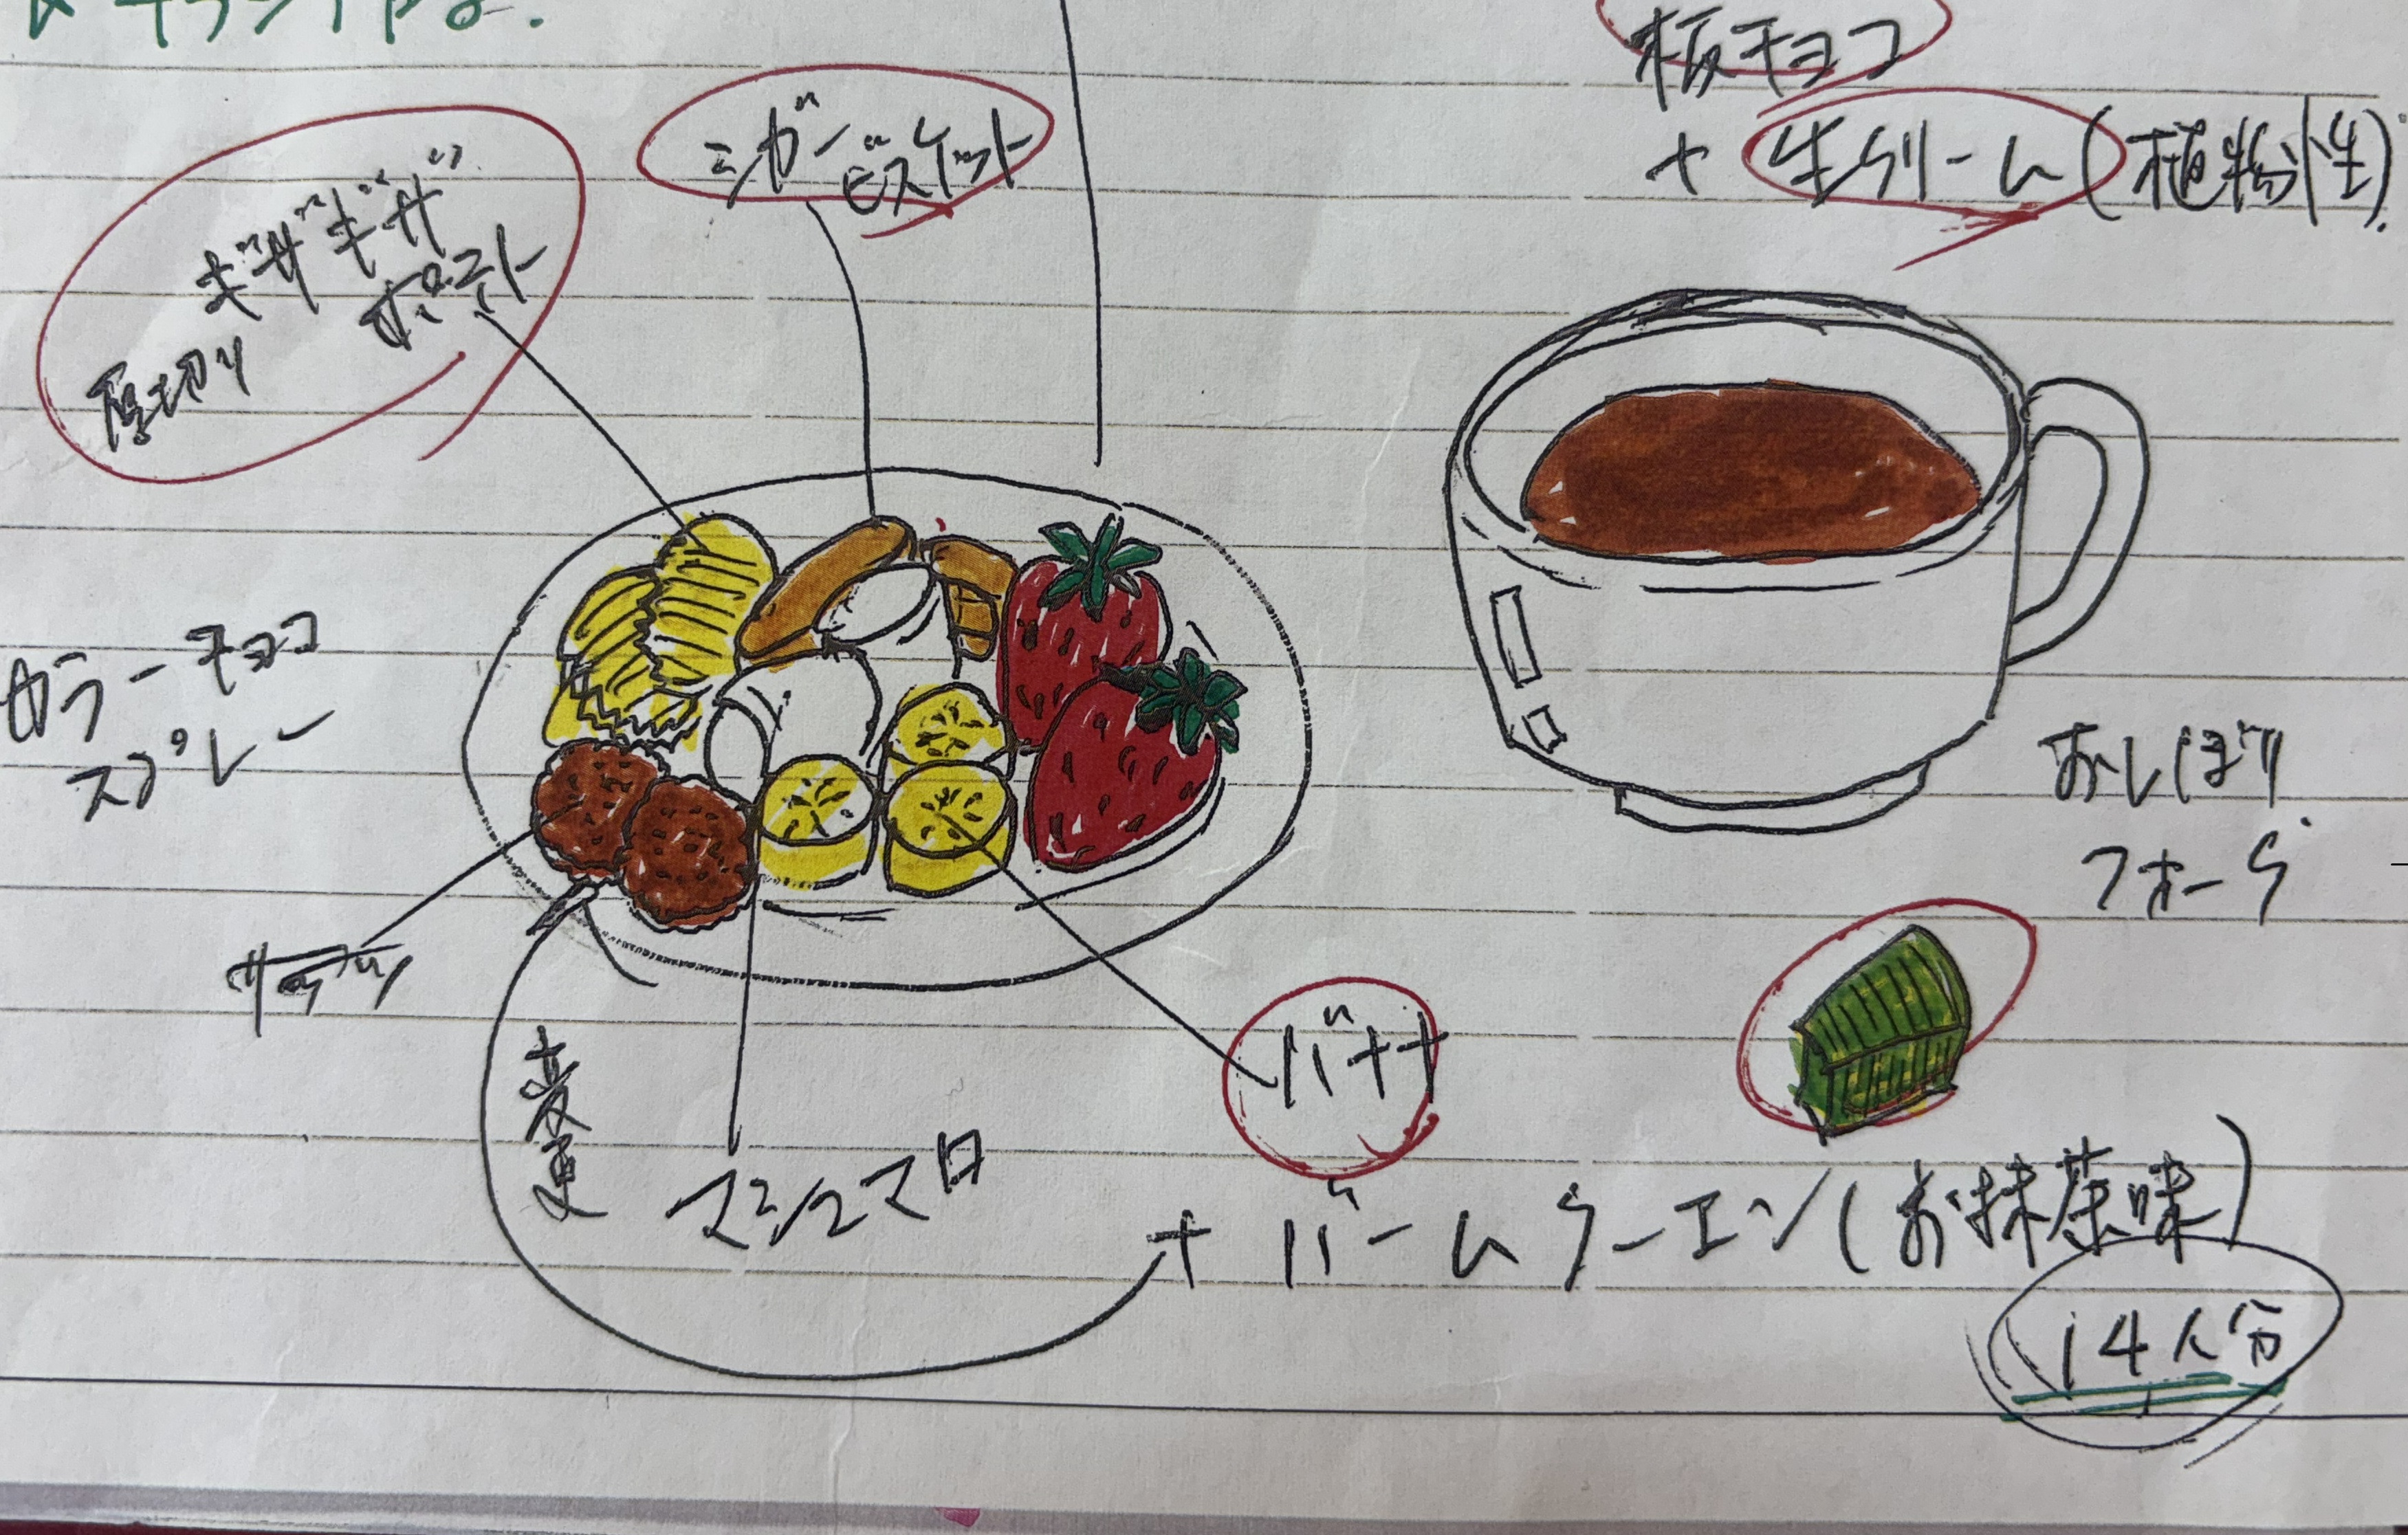 板チョコ
+ 生クリーム(植物性)
シガー
ビスケット
ギザギザ
ポテト
厚切り
カラーチョコ
スプレー
おしぼり
フォーク
バナナ
変更
マシュマロ
+ バームクーエン(お抹茶味)
14人分